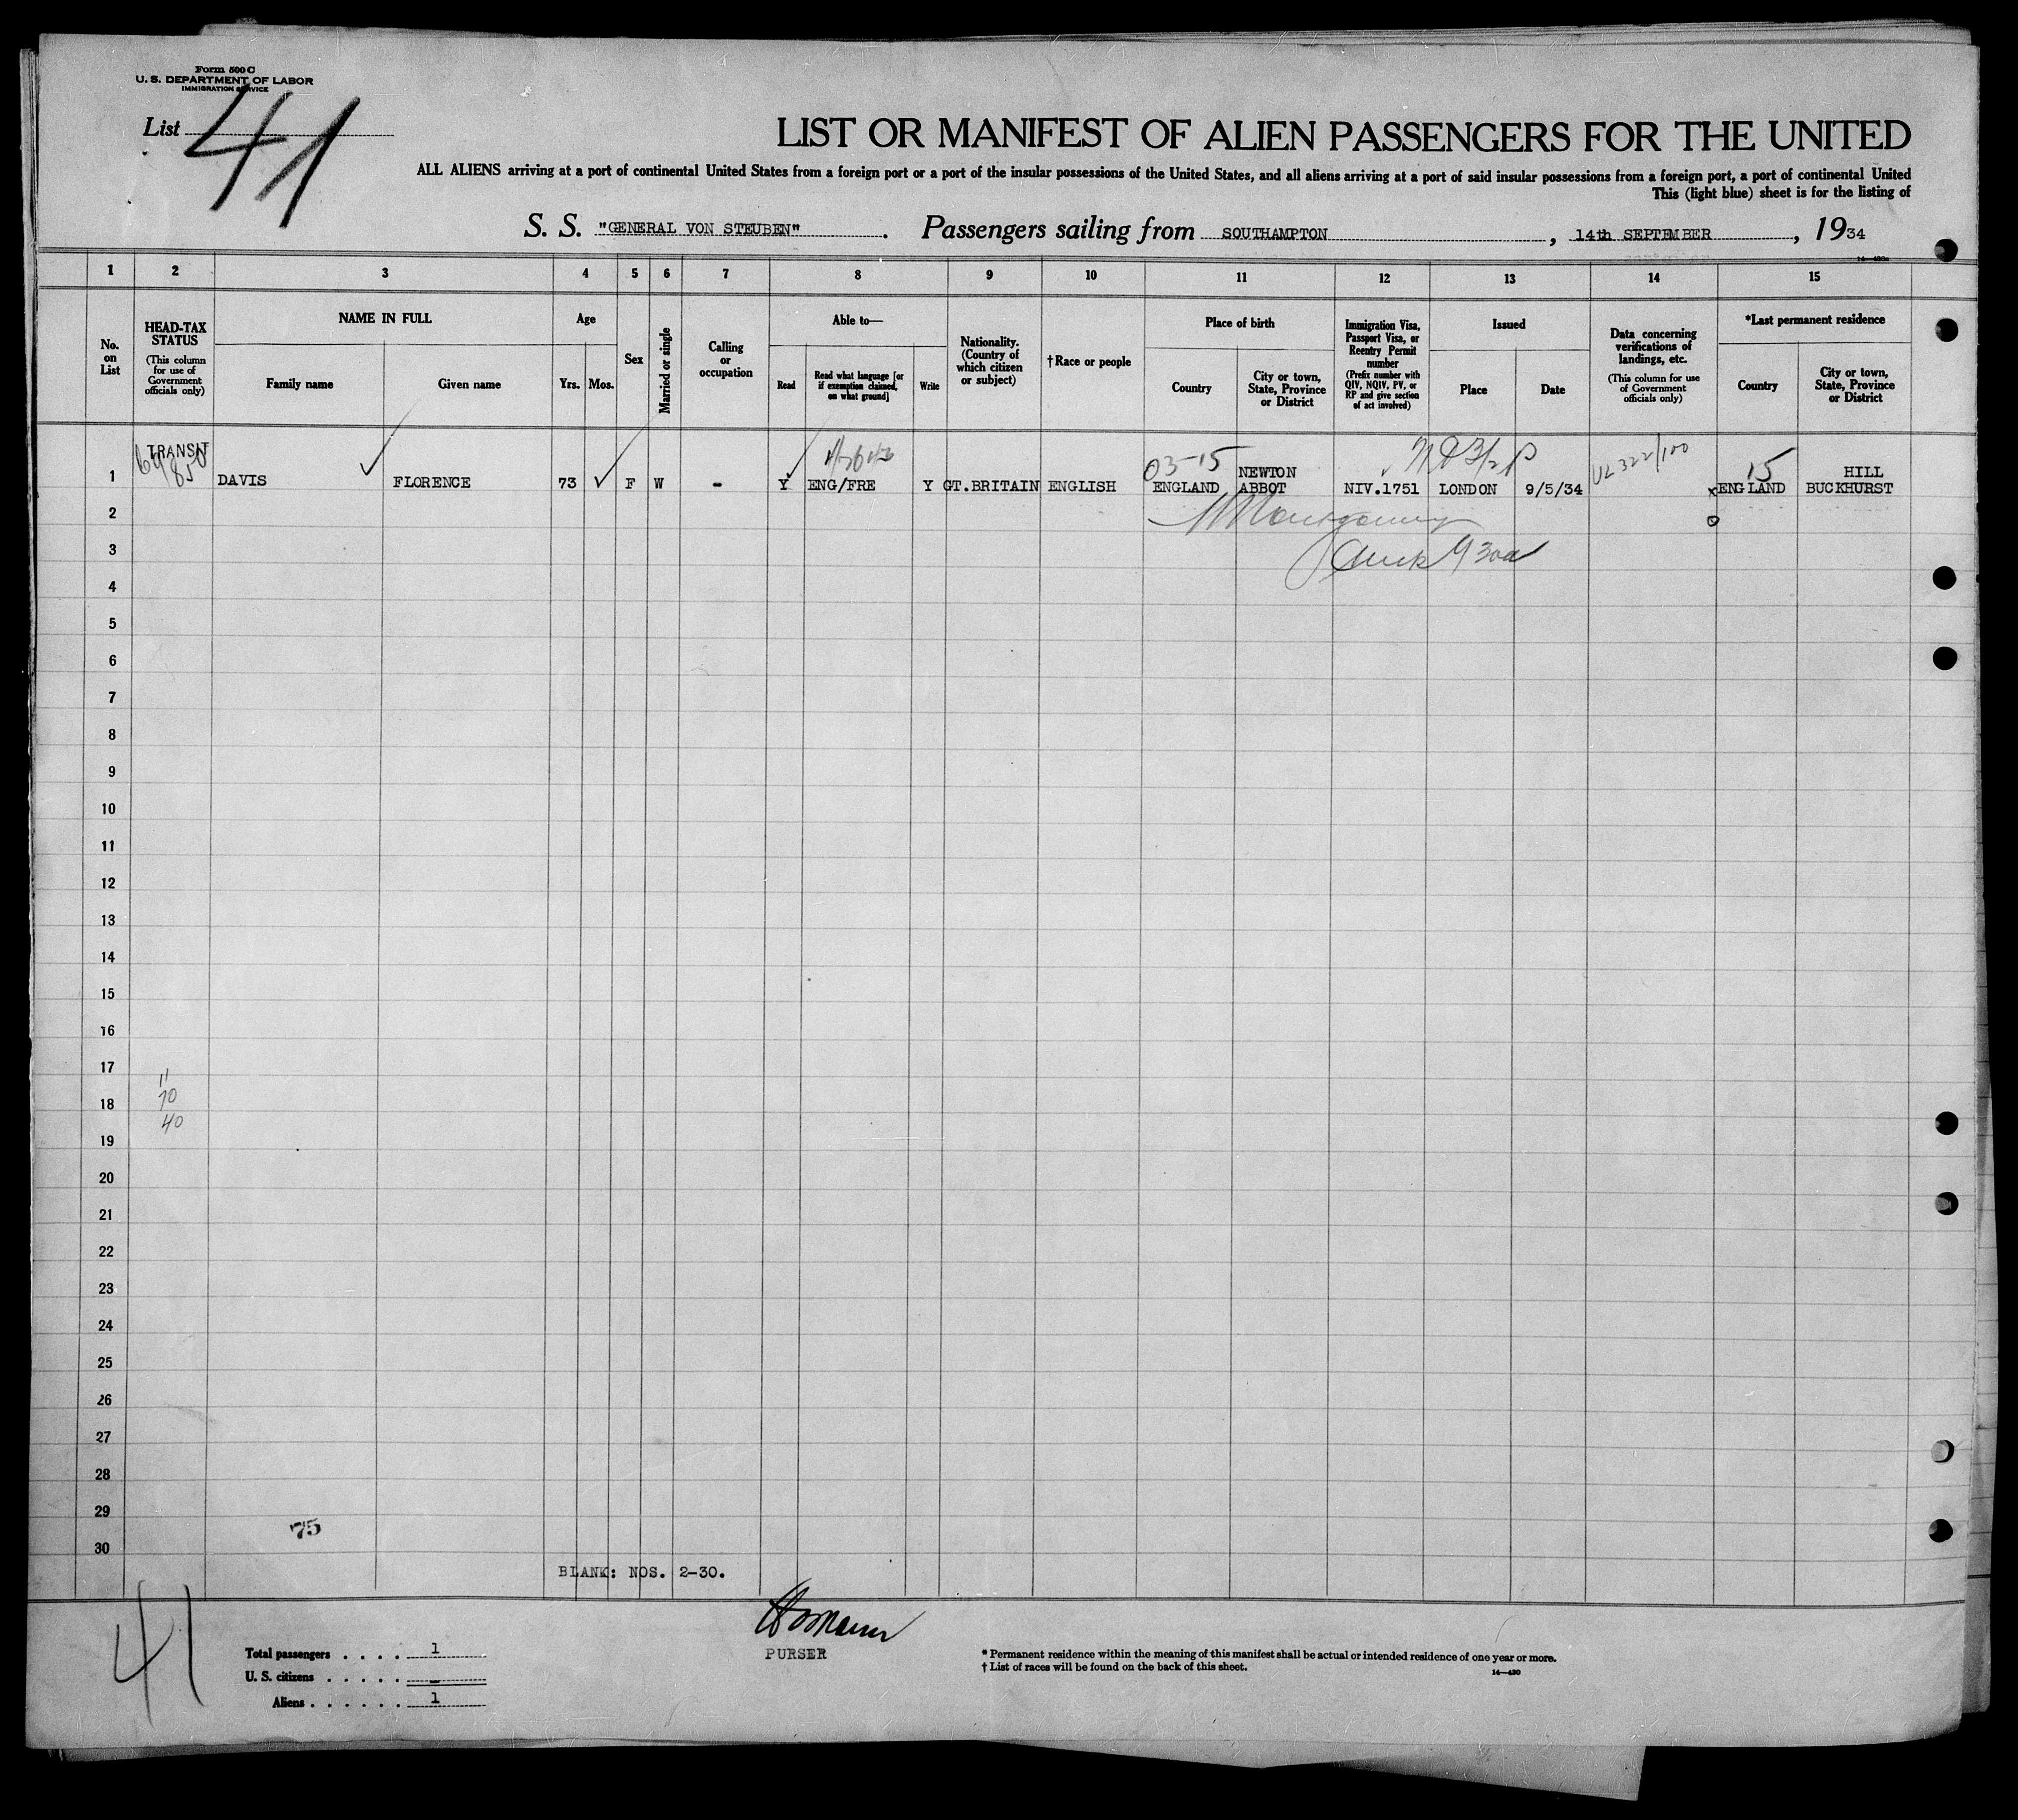 Form 500 C
U. S. DEPARTMENT OF LABOR
IMMIGRATION SERVICE
List 41
LIST OR MANIFEST OF ALIEN PASSENGERS FOR THE UNITED
ALL ALIENS arriving at a port of continental United States from a foreign port or a port of the insular possessions of the United States, and all aliens arriving at a port of said insular possessions from a foreign port, a port of continental United
This (light blue) sheet is for the listing of
S. S. "GENERAL VON STEUBEN". Passengers sailing from SOUTHAMPTON, 14th SEPTEMBER, 1934
1 2 3 4 5 6 7 8 9 10 11 12 13 14 15
No. on List
HEAD-TAX STATUS
(This column for use of Government officials only)
NAME IN FULL
Family name
Given name
Age
Yrs. Mos.
Sex
Married or single
Calling or occupation
Able to—
Read
Read what language [or if exemption claimed, on what ground]
Write
Nationality. (Country of which citizen or subject)
†Race or people
Place of birth
Country
City or town, State, Province or District
Immigration Visa, Passport Visa, or Reentry Permit number
(Prefix number with QIV, NQIV, PV, or RP and give section of act involved)
Issued
Place
Date
Data concerning verifications of landings, etc.
(This column for use of Government officials only)
*Last permanent residence
Country
City or town, State, Province or District
TRANSIT
03-15 15
1 DAVIS FLORENCE 73 F W - Y ENG/FRE Y GT.BRITAIN ENGLISH ENGLAND NEWTON ABBOT NIV.1751 LONDON 9/5/34 xENGLAND HILL BUCKHURST
2
3
4
5
6
7
8
9
10
11
12
13
14
15
16
17
11
18
70
40
19
20
21
22
23
24
25
26
27
28
29
75
30
BLANK: NOS. 2-30.
41
PURSER
Total passengers . . . . 1
U. S. citizens . . . . . -
Aliens . . . . . . 1
* Permanent residence within the meaning of this manifest shall be actual or intended residence of one year or more.
† List of races will be found on the back of this sheet.
14—430